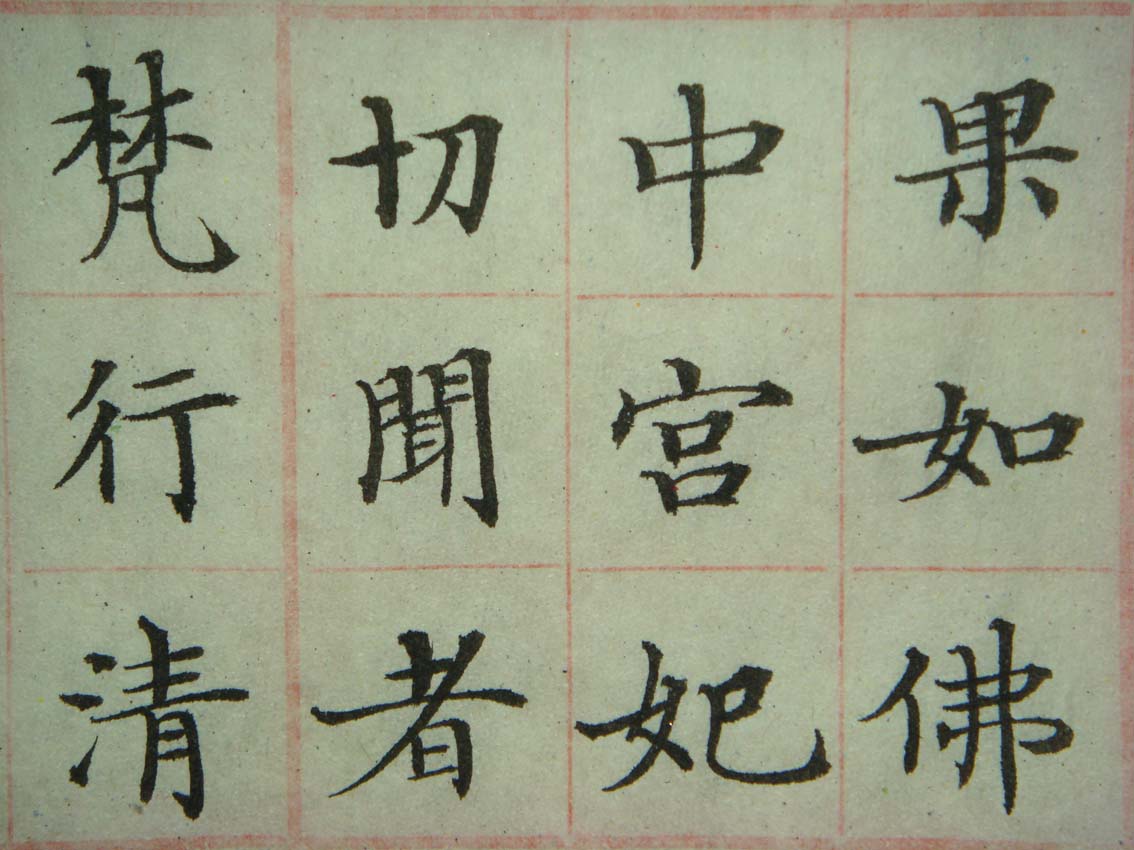 果如佛
中宮妃
切聞者
梵行清